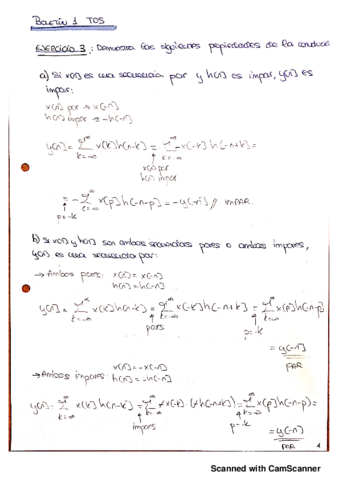 Boletín 1 TDS
EJERCICIO 3: Demuestra las siguientes propiedades de la
a) Si x[n] es una secuencia par y h[n] es impar, y[n] es
impar:
x[n] par → x[-n]
h[n] impar → -h[-n]
y[n] = Σ x[k]h[n-k] = Σ -x[-k] h[-n+k] =
k=-∞ k=-∞
x[n] par
h[n] impar
= -Σ x[p]h[-n-p] = -y[-n] // IMPAR.
p=-k
b) Si x[n] y h[n] son ambas secuencias pares o ambas impares,
y[n] es una secuencia par:
→ Ambos pares: x[n] = x[-n]
h[n] = h[-n]
y[n] = Σ x[k]h[n-k] = Σ x[-k]h[-n+k] = Σ x[p]h[-n-p]
pares p=-k
= y[-n]
PAR
x[n] = -x[-n]
→ Ambos impares: h[n] = -h[-n]
y[n] = Σ x[k]h[n-k] = Σ -x[-k]·(-h[-n+k]) = Σ x[p]h[-n-p] =
impares p=-k
= y[-n]
PAR
1
Scanned with CamScanner